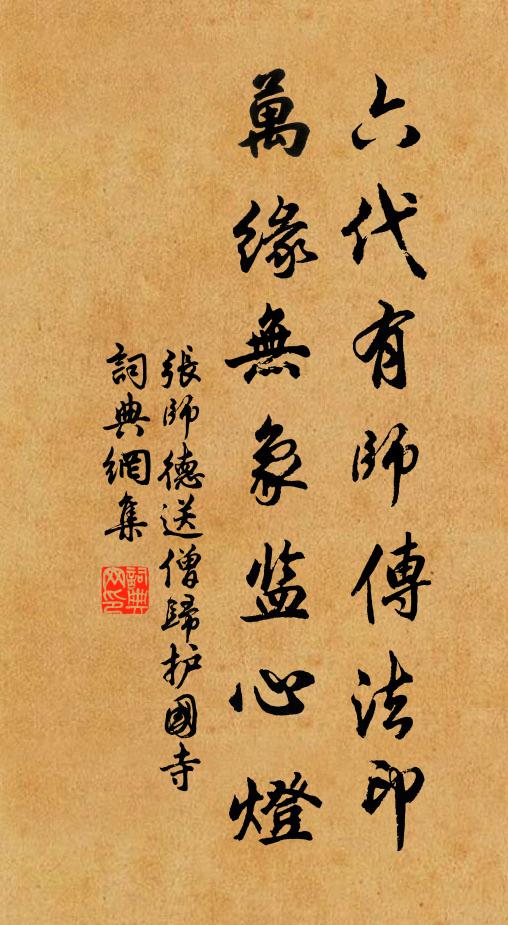 六代有師傳法印
萬緣無象监心燈
張師德送僧歸护國寺
詞典網集
詞典网印